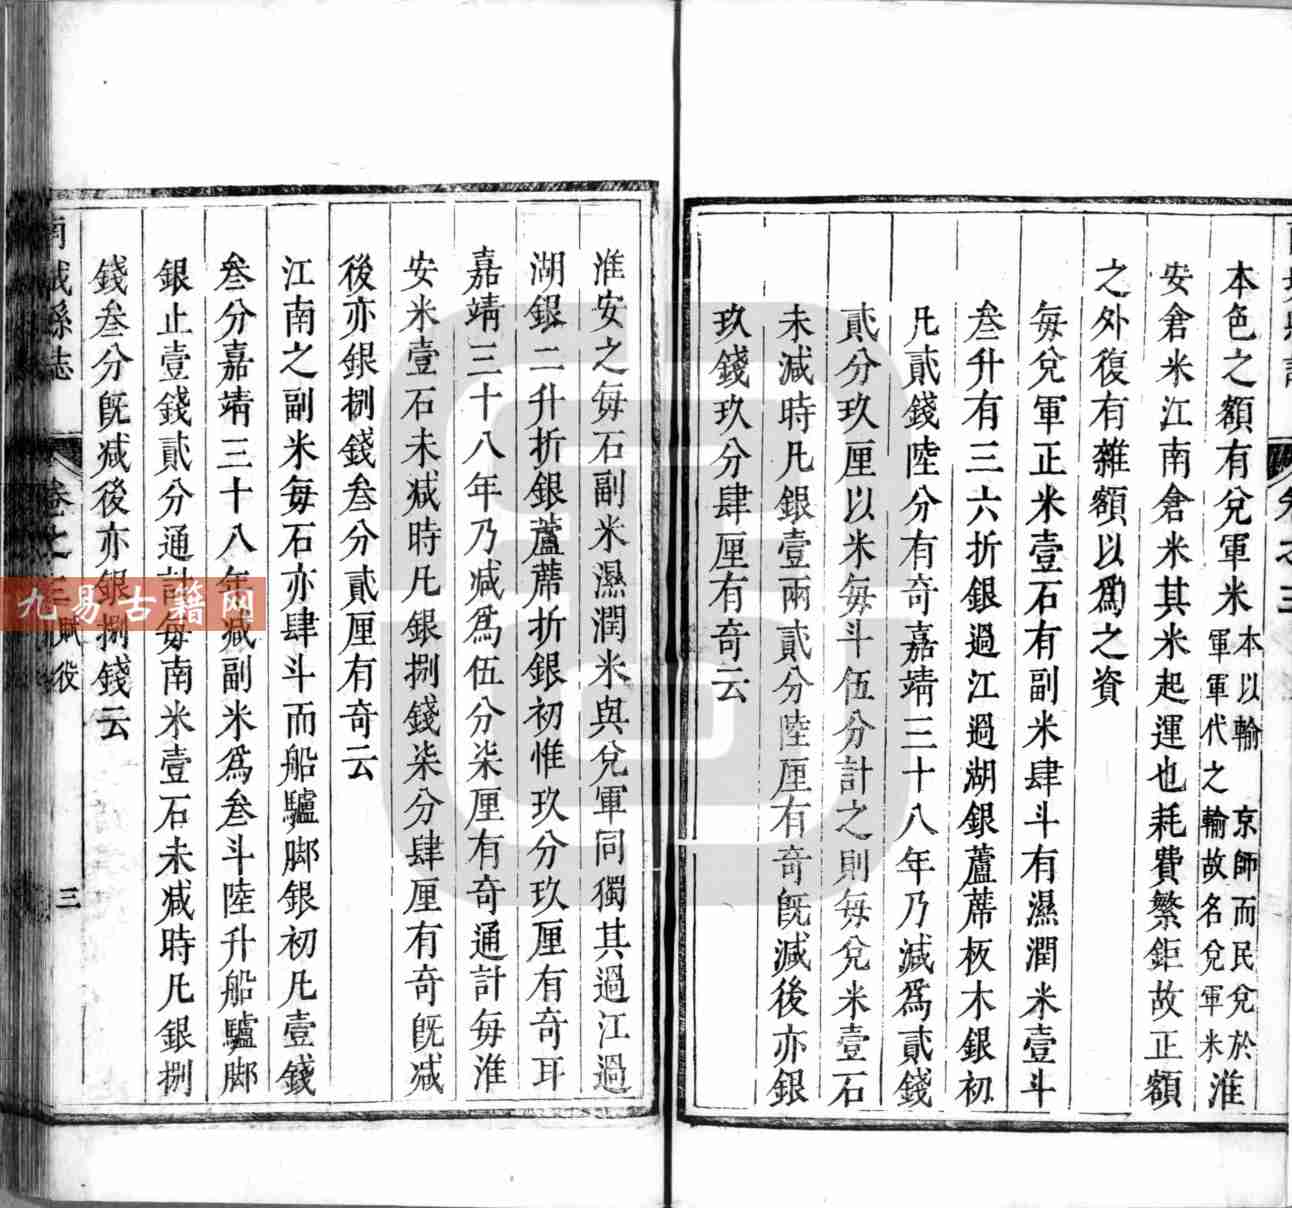 本色之額有兌軍米本以輸京師而民兌於淮
軍軍代之輸故名兌軍米
安倉米江南倉米其米起運也耗費繁鉅故正額
之外復有雜額以爲之資
每兌軍正米壹石有副米肆斗有濕潤米壹斗
叁升有三六折銀過江過湖銀蘆蓆板木銀初
凡貳錢陸分有奇嘉靖三十八年乃減爲貳錢
貳分玖厘以米每斗伍分計之則每兌米壹石
未減時凡銀壹兩貳分陸厘有奇旣減後亦銀
玖錢玖分肆厘有奇云
淮安之每石副米濕潤米與兌軍同獨其過江過
湖銀二升折銀蘆蓆折銀初惟玖分玖厘有奇耳
嘉靖三十八年乃減爲伍分柒厘有奇通計每淮
安米壹石未減時凡銀捌錢柒分肆厘有奇旣減
後亦銀捌錢叁分貳厘有奇云
江南之副米每石亦肆斗而船驢脚銀初凡壹錢
叁分嘉靖三十八年減副米爲叁斗陸升船驢脚
銀止壹錢貳分通計每南米壹石未減時凡銀捌
錢叁分旣減後亦銀捌錢云
縣志 卷之三 賦役 三
九易古籍网